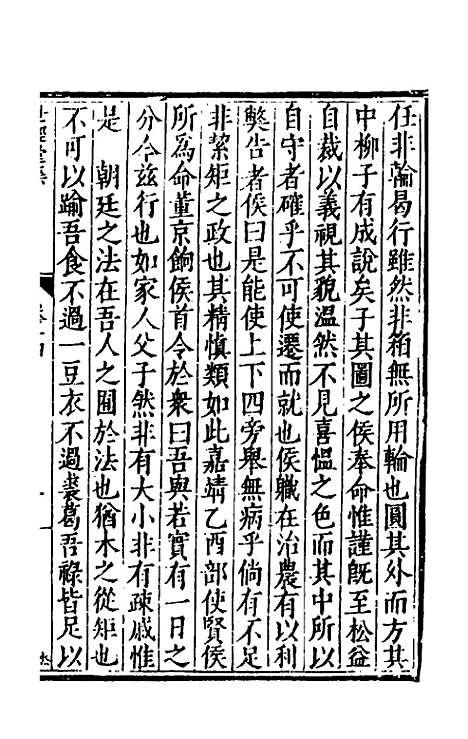 任非輪曷行雖然非箱無所用輪也圓其外而方其
中柳子有成說矣子其圖之侯奉命惟謹旣至松益
自裁以義視其貌溫然不見喜慍之色而其中所以
自守者確乎不可使遷而就也侯職在治農有以利
獘告者侯曰是能使上下四旁舉無病乎倘有不足
非絜矩之政也其精慎類如此嘉靖乙酉部使賢侯
所爲命董京餉侯首令於衆曰吾與若實有一日之
分今玆行也如家人父子然非有大小非有疎戚惟
是　朝廷之法在吾人之囿於法也猶木之從矩也
不可以踰吾食不過一豆衣不過裘葛吾祿皆足以